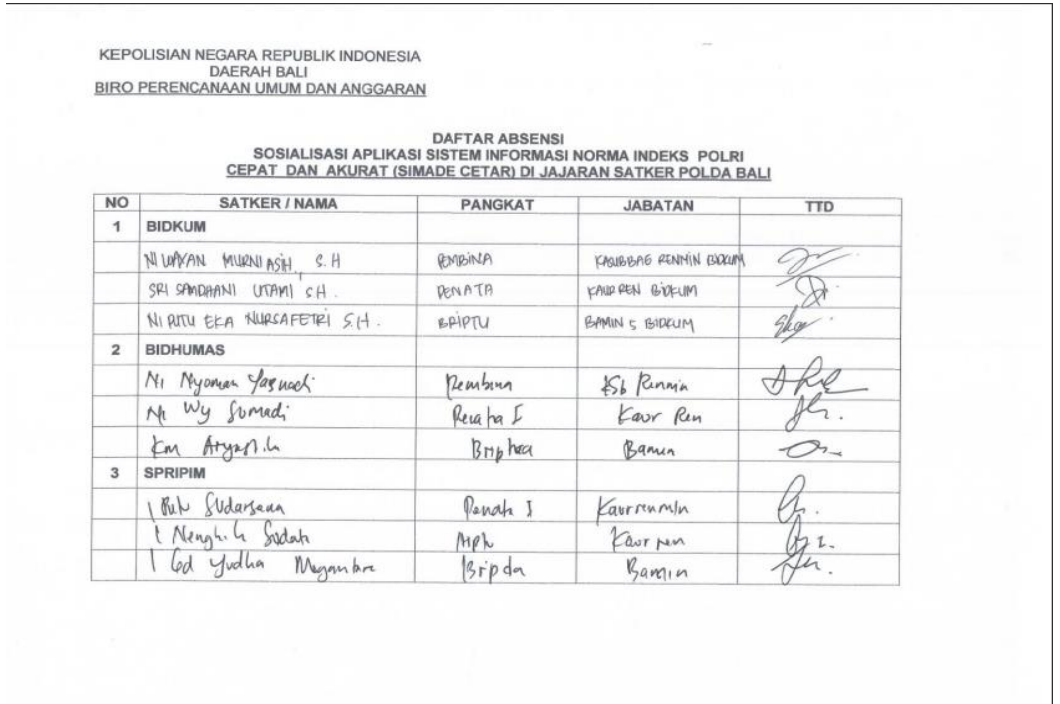 KEPOLISIAN NEGARA REPUBLIK INDONESIA
DAERAH BALI
BIRO PERENCANAAN UMUM DAN ANGGARAN
DAFTAR ABSENSI
SOSIALISASI APLIKASI SISTEM INFORMASI NORMA INDEKS POLRI
CEPAT DAN AKURAT (SIMADE CETAR) DI JAJARAN SATKER POLDA BALI
NO SATKER / NAMA PANGKAT JABATAN TTD
1 BIDKUM
NI WAYAN MURNI ASIH, S.H PEMBINA KASUBBAG RENMIN BIDKUM
SRI SANDHANI UTAMI SH. PENATA KAUR REN BIDKUM
NI PUTU EKA NURSAFETRI S.H. BRIPTU BAMIN 5 BIDKUM
2 BIDHUMAS
Ni Nyoman Pembina Ksb Renmin
Ni Wy Sumadi Penata I Kaur Ren
Km Bripka Bamin
3 SPRIPIM
I Putu Sudarsana Penata I Kaurrenmin
I Nengah Kaur ren
I Gd Yudha Megantara Bripda Bamin